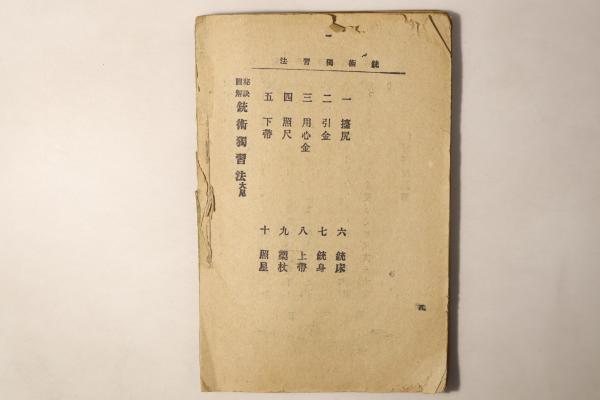 一
銃術獨習法
一 擡尻
二 引金
三 用心金
四 照尺
五 下帶
六 銃床
七 銃身
八 上帶
九 槊杖
十 照星
秘訣圖解 銃術獨習法大尾